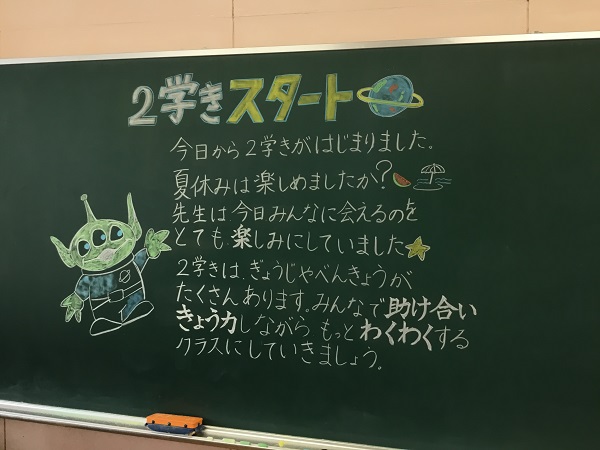 2学きスタート
今日から2学きがはじまりました。
夏休みは楽しめましたか?
先生は今日みんなに会えるのを
とても楽しみにしていました
2学きは、ぎょうじやべんきょうが
たくさんあります。みんなで助け合い
きょう力しながら もっとわくわくする
クラスにしていきましょう。